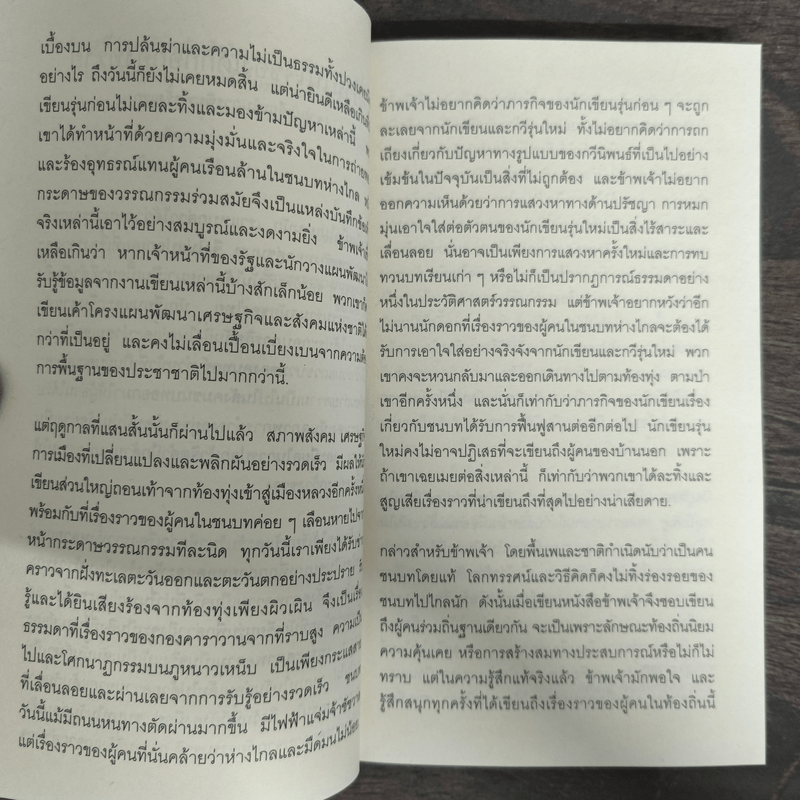 เบื้องบน การปล้นฆ่าและความไม่เป็นธรรมทั้งปวงเคย
อย่างไร ถึงวันนี้ก็ยังไม่เคยหมดสิ้น แต่น่ายินดีเหลือเกิน
เขียนรุ่นก่อนไม่เคยละทิ้งและมองข้ามปัญหาเหล่านี้
เขาได้ทำหน้าที่ด้วยความมุ่งมั่นและจริงใจในการ
และร้องอุทธรณ์แทนผู้คนเรือนล้านในชนบทห่างไกล
กระดาษของวรรณกรรมร่วมสมัยจึงเป็นแหล่งบันทึก
จริงเหล่านี้เอาไว้อย่างสมบูรณ์และงดงามยิ่ง ข้าพเจ้า
เหลือเกินว่า หากเจ้าหน้าที่ของรัฐและนักวางแผนพัฒนา
รับรู้ข้อมูลจากงานเขียนเหล่านี้บ้างสักเล็กน้อย พวกเขา
เขียนเค้าโครงแผนพัฒนาเศรษฐกิจและสังคมแห่งชาติ
กว่าที่เป็นอยู่ และคงไม่เลื่อนเปื้อนเบี่ยงเบนจากความ
การพื้นฐานของประชาชาติไปมากกว่านี้.
แต่ฤดูกาลที่แสนสั้นนั้นก็ผ่านไปแล้ว สภาพสังคม เศรษฐกิจ
การเมืองที่เปลี่ยนแปลงและพลิกผันอย่างรวดเร็ว มีผลให้
เขียนส่วนใหญ่ถอนเท้าจากท้องทุ่งเข้าสู่เมืองหลวงอีกครั้ง
พร้อมกับที่เรื่องราวของผู้คนในชนบทค่อย ๆ เลือนหายไป
หน้ากระดาษวรรณกรรมทีละนิด ทุกวันนี้เราเพียงได้รับ
คราวจากฝั่งทะเลตะวันออกและตะวันตกอย่างประปราย
รู้และได้ยินเสียงร้องจากท้องทุ่งเพียงผิวเผิน จึงเป็นเรื่อง
ธรรมดาที่เรื่องราวของกองคาราวานจากที่ราบสูง ความเป็น
ไปและโศกนาฏกรรมบนภูหนาวเหน็บ เป็นเพียงกระแสลม
ที่เลื่อนลอยและผ่านเลยจากการรับรู้อย่างรวดเร็ว ชนบท
วันนี้แม้มีถนนหนทางตัดผ่านมากขึ้น มีไฟฟ้าแจ่มจ้าชัชวาล
แต่เรื่องราวของผู้คนที่นั่นคล้ายว่าห่างไกลและมืดมน
ข้าพเจ้าไม่อยากคิดว่าภารกิจของนักเขียนรุ่นก่อน ๆ จะถูก
ละเลยจากนักเขียนและกวีรุ่นใหม่ ทั้งไม่อยากคิดว่าการถก
เถียงเกี่ยวกับปัญหาทางรูปแบบของกวีนิพนธ์ที่เป็นไปอย่าง
เข้มข้นในปัจจุบันเป็นสิ่งที่ไม่ถูกต้อง และข้าพเจ้าไม่อยาก
ออกความเห็นด้วยว่าการแสวงหาทางด้านปรัชญา การหมก
มุ่นเอาใจใส่ต่อตัวตนของนักเขียนรุ่นใหม่เป็นสิ่งไร้สาระและ
เลื่อนลอย นั่นอาจเป็นเพียงการแสวงหาครั้งใหม่และการทบ
ทวนบทเรียนเก่า ๆ หรือไม่ก็เป็นปรากฏการณ์ธรรมดาอย่าง
หนึ่งในประวัติศาสตร์วรรณกรรม แต่ข้าพเจ้าอยากหวังว่าอีก
ไม่นานนักดอกที่เรื่องราวของผู้คนในชนบทห่างไกลจะต้องได้
รับการเอาใจใส่อย่างจริงจังจากนักเขียนและกวีรุ่นใหม่ พวก
เขาคงจะหวนกลับมาและออกเดินทางไปตามท้องทุ่ง ตามป่า
เขาอีกครั้งหนึ่ง และนั่นก็เท่ากับว่าภารกิจของนักเขียนเรื่อง
เกี่ยวกับชนบทได้รับการฟื้นฟูสานต่ออีกต่อไป นักเขียนรุ่น
ใหม่คงไม่อาจปฏิเสธที่จะเขียนถึงผู้คนของบ้านนอก เพราะ
ถ้าเขาเฉยเมยต่อสิ่งเหล่านี้ ก็เท่ากับว่าพวกเขาได้ละทิ้งและ
สูญเสียเรื่องราวที่น่าเขียนถึงที่สุดไปอย่างน่าเสียดาย.
กล่าวสำหรับข้าพเจ้า โดยพื้นเพและชาติกำเนิดนับว่าเป็นคน
ชนบทโดยแท้ โลกทรรศน์และวิธีคิดก็คงไม่ทิ้งร่องรอยของ
ชนบทไปไกลนัก ดังนั้นเมื่อเขียนหนังสือข้าพเจ้าจึงชอบเขียน
ถึงผู้คนร่วมถิ่นฐานเดียวกัน จะเป็นเพราะลักษณะท้องถิ่นนิยม
ความคุ้นเคย หรือการสร้างสมทางประสบการณ์หรือไม่ก็ไม่
ทราบ แต่ในความรู้สึกแท้จริงแล้ว ข้าพเจ้ามักพอใจ และ
รู้สึกสนุกทุกครั้งที่ได้เขียนถึงเรื่องราวของผู้คนในท้องถิ่นนี้